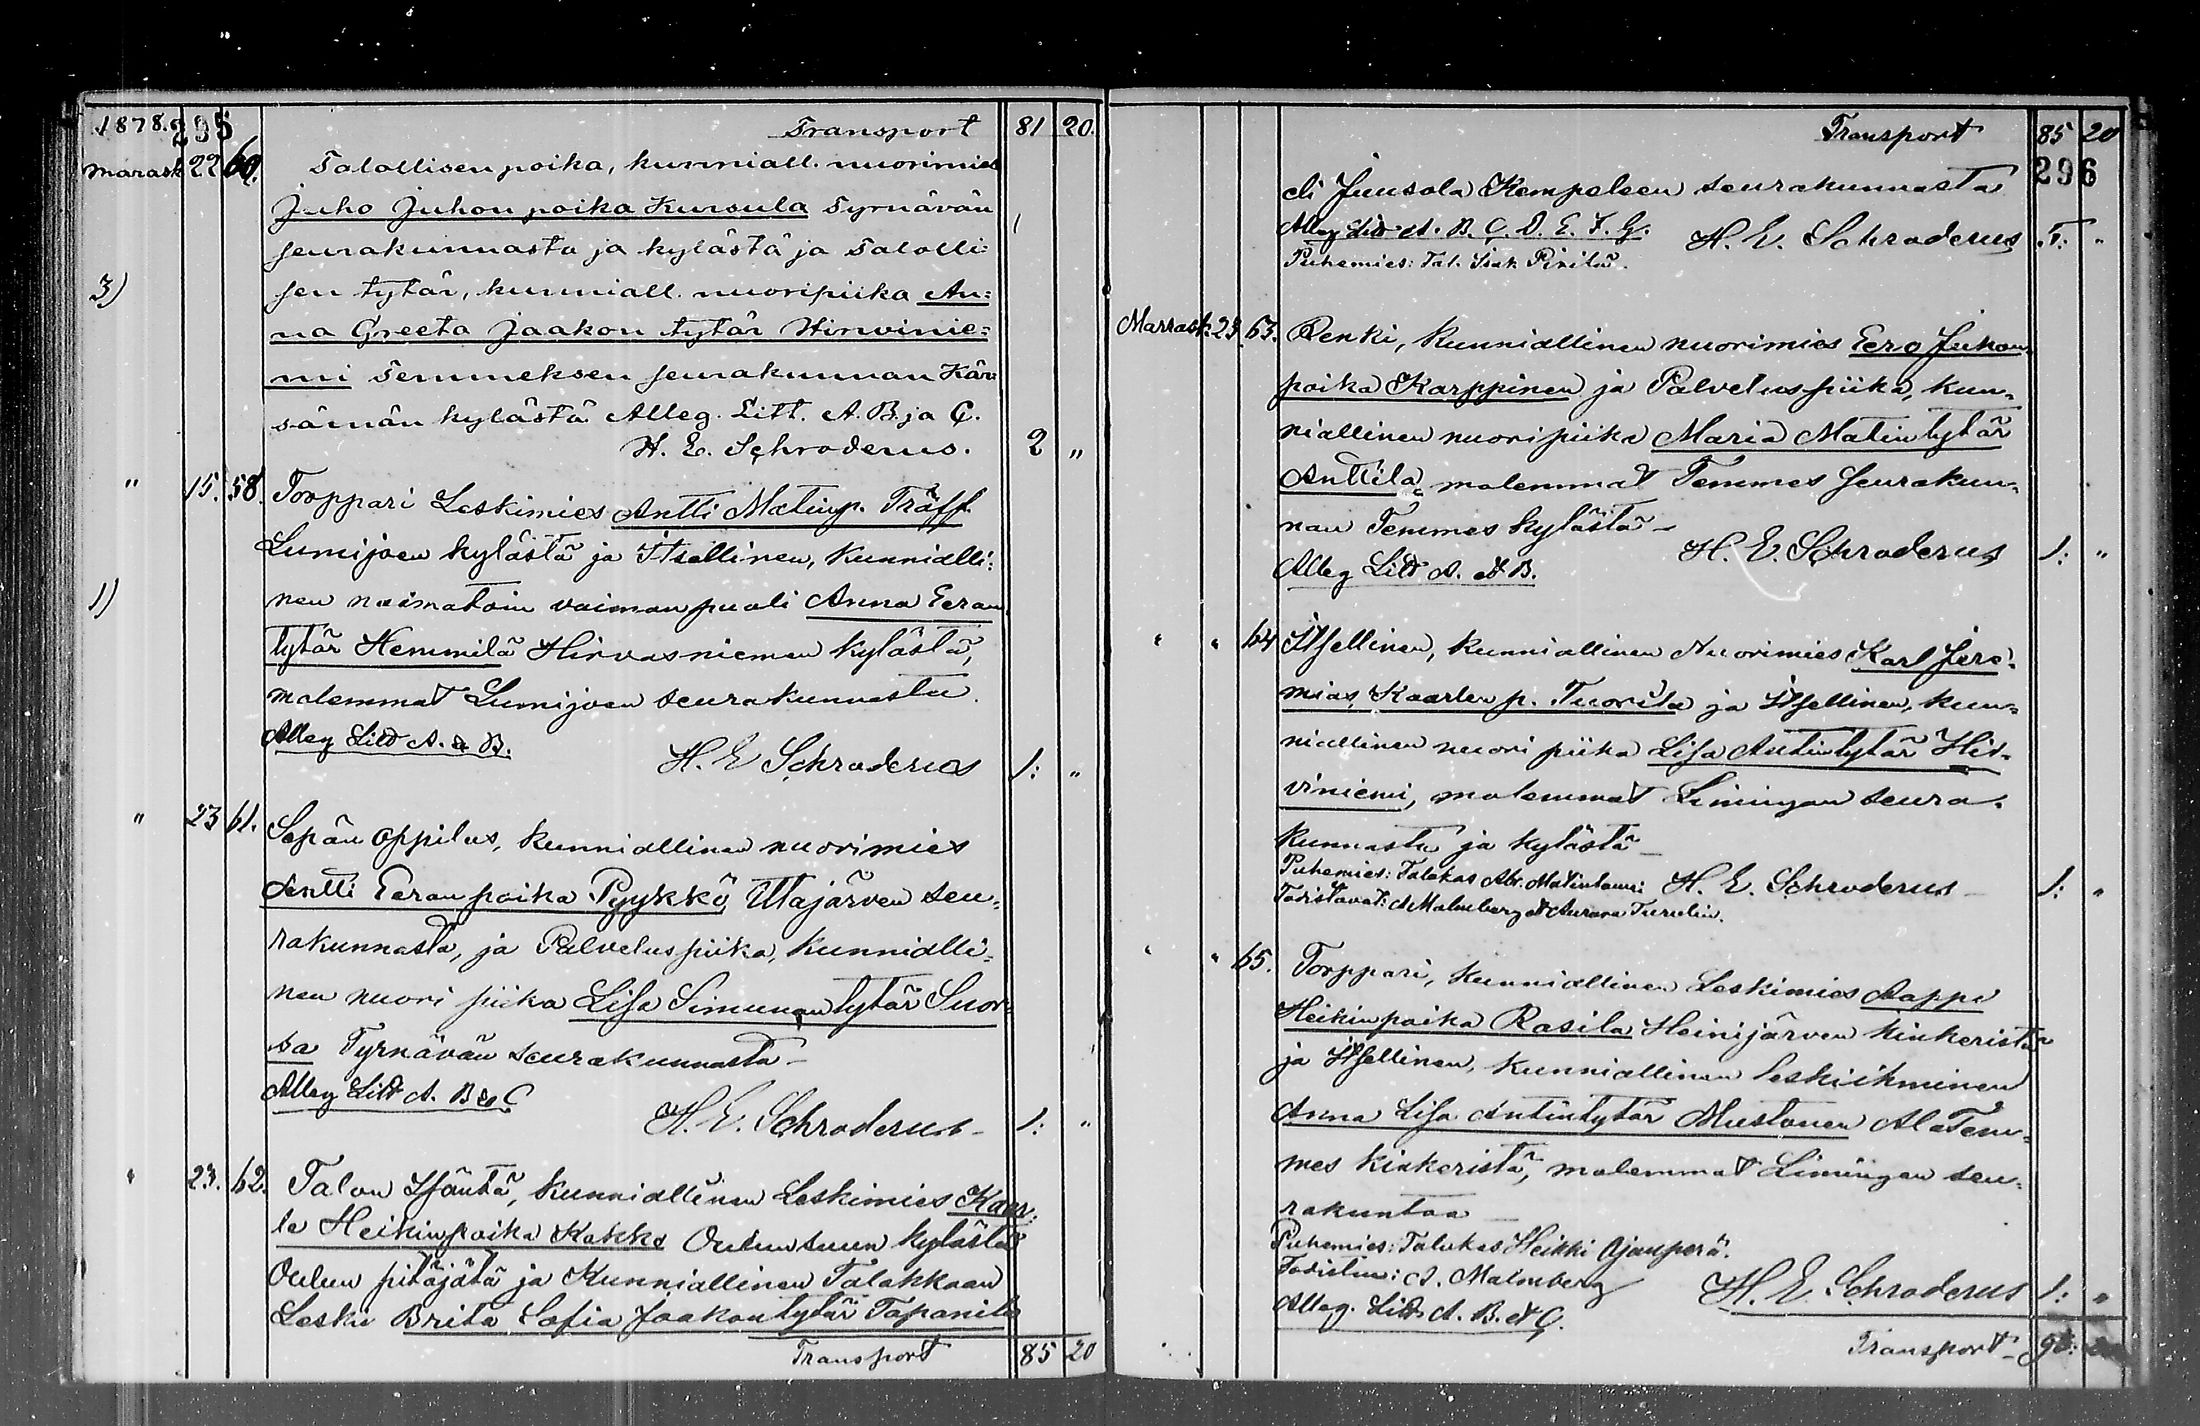 1878. 295 Transport 81 20.
Marask 22 60. Talollisen poika, kunniall. nuorimies
Juho Juhon poika Kursula Tyrnävän
seurakunnasta ja kylästä ja Talolli=
3) sen tytär, kunniall. nuoripiika An=
na Greeta Jaakon tytär Hirvinie=
mi Temmeksen seurakunnan Kär=
sämän kylästä Alleg. Litt. A. B. ja C.
H. E. Schroderus. 2 „
" 15. 58. Torppari Leskimies Antti Matinp. Träff
Lumijoen kylästä ja Itsellinen, kunnialli=
1) nen naimatoin vaimonpuoli Anna Eeron
tytär Hemmilä Hirvasniemen kylästä,
molemmat Lumijoen seurakunnasta.
Alleg Litt A. & B.
H. E Schroderus 1: „
" 23 61. Sepän oppilas, kunniallinen nuorimies
Antti Eeron poika Pyykkö Utajärven seu=
rakunnasta, ja Palveluspiika, kunnialli=
nen nuori piika Lisa Simunan tytär Suor=
sa Tyrnävän seurakunnasta –
Alleg Litt A. B & C
H. E. Schroderus – 1: „
" 23. 62. Talon Isäntä, kunniallinen Leskimies Kaar=
le Heikinpoika Kakko Oulunsuun kylästä
Oulun pitäjätä ja Kunniallinen Talokkaan
Leski Brita Sofia Jaakontytär Tapanila
Transport 85 20
Transport 85 20
296
eli Juusola Kempeleen seurakunnasta
Alleg Litt A. B. C. D. E. F. G. H. E. Schroderus 5: „
Puhemies: Tal. Isak Pirilä.
Marrask. 23. 63. Renki, kunniallinen nuorimies Eero Juhon
poika Karppinen ja Palveluspiika, kun=
niallinen nuoripiika Maria Matintytär
Anttila, molemmat Temmes seurakun=
nan Temmes kylästä –
H. E. Schroderus 1: „
Alleg Litt A. & B.
" " 64 Itsellinen, kunniallinen Nuorimies Karl Jere=
mias Kaarlen p. Tuorila ja Itsellinen, kun=
niallinen nuori piika Lisa Antintytär Hir=
viniemi, molemmat Limingan seura=
kunnasta ja kylästä –
Puhemies: Talokas Abr. Matinlauri H. E. Schroderus – 1: „
Todistavat: A Malmberg & Aurora
" " 65. Torppari, kunniallinen Leskimies Aappo
Heikinpoika Rasila Heinijärven kinkeristä
ja Itsellinen, kunniallinen leskiihminen
Anna Lisa Antintytär Mustonen AlaTem=
mes kinkeristä, molemmat Limingan seu=
rakuntaa –
Puhemies: Talokas Heikki Ojanperä.
Todistaa: A. Malmberg H. E. Schroderus 1: „
Alleg. Litt A. B. & C.
Transport –